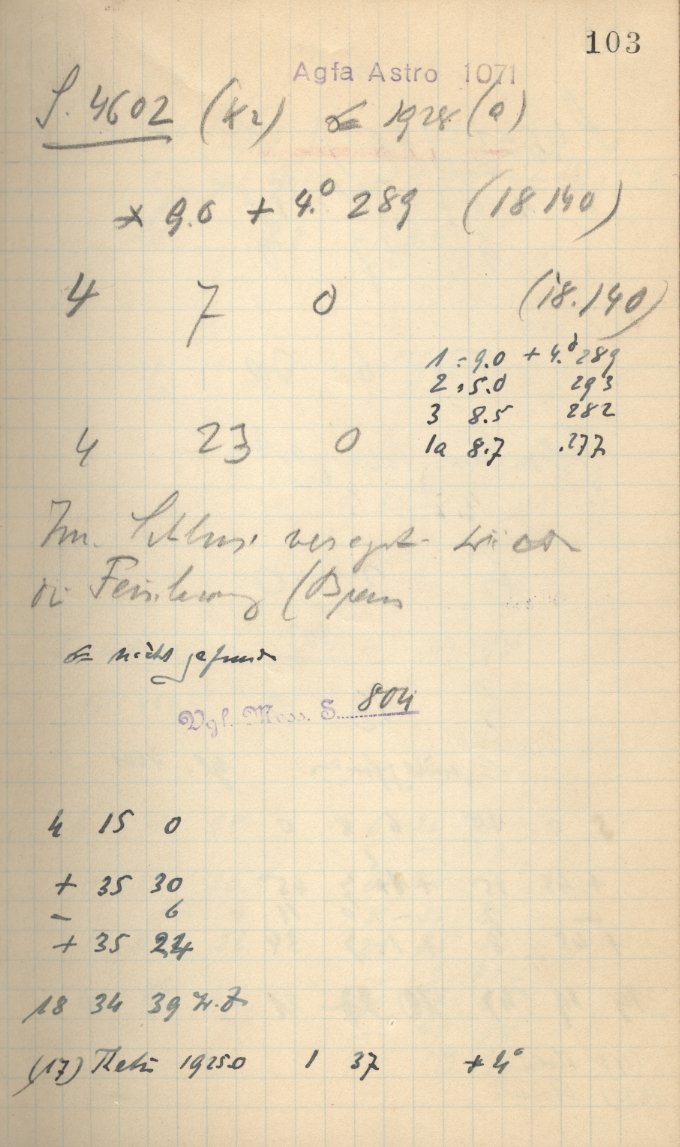 103
Agfa Astro 1071
S. 4602 (K2) 1928 (a)
* 9.0 + 4.° 289 (18.140)
4 7 0 (18.140)
1 : 9.0 + 4.° 289
2 : 5.0 293
3 8.5 282
1a 8.7 .277
4 23 0
Im Schluss versagt wieder
die
nicht gefunden
Vgl. Mess. S. 804
4 15 0
+ 35 30
- 6
+ 35 24
18 34 39
(17) 1925.0 1 37 + 4°